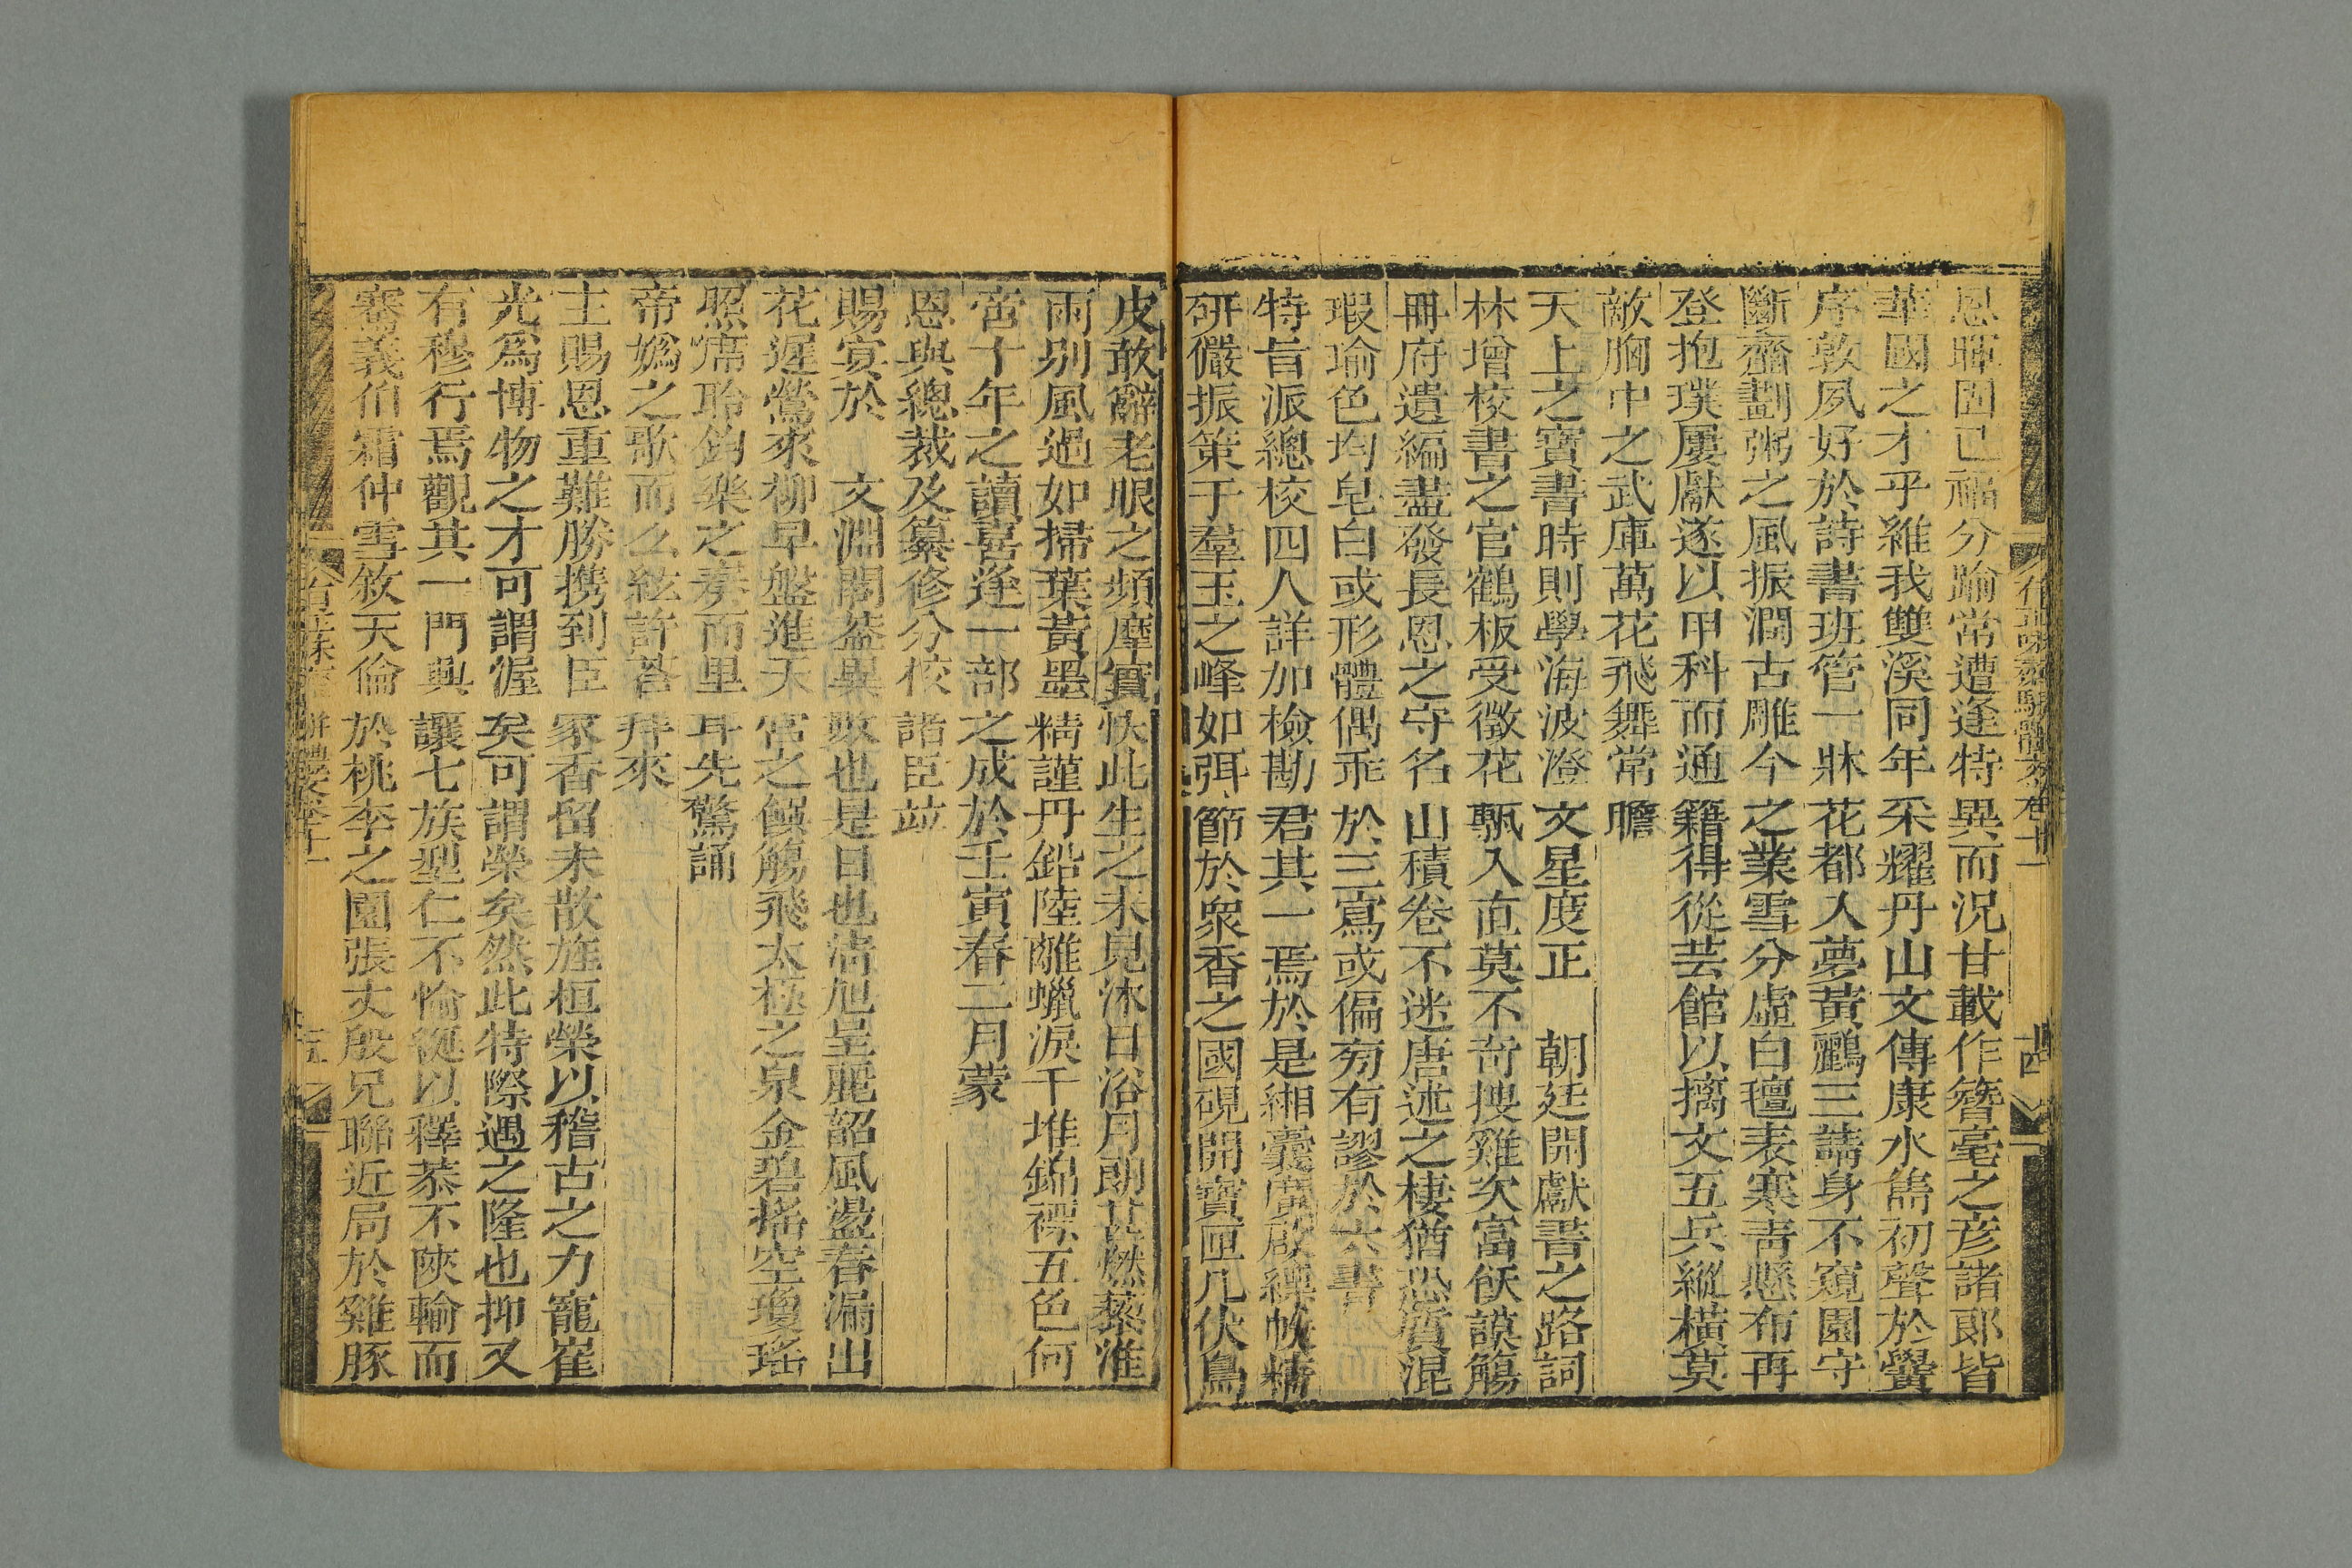 恩暉固已福分踰常遭逢特異而況甘載作簪毫之彥諸郎皆
華國之才乎維我雙溪同年采耀丹山文傳康水雋初聲於黌
序敦夙好於詩書班管一牀花都入夢黃鸝三請身不窺園守
斷虀劃粥之風振潤古雕今之業雪分虛白氊表寒靑懸布再
登抱璞屢獻遂以甲科而通籍得從芸館以摛文五兵縱橫莫
敵胸中之武庫萬花飛舞常膽
天上之寶書時則學海波澄文星度正 朝廷開獻書之路詞
林增校書之官鶴板受徵花甎入直莫不奇搜雞次富飫謨觴
冊府遺編盡發長恩之守名山積卷不迷唐述之棲猶恐質混
瑕瑜色均皂白或形體偶乖於三寫或偏旁有謬於六書
特旨派總校四人詳加檢勘君其一焉於是緗囊廣啟縹帙精
研儼振策于羣玉之峰如弭節於衆香之國硯開寶匣几伏鳥
皮敢辭老眼之頻摩實快此生之未見沐日浴月朗甚燃藜淮
雨別風過如掃葉黃墨精謹丹鉛陸離蠟淚千堆錦褾五色何
啻十年之讀喜逢一部之成於壬寅春二月蒙
恩與總裁及纂修分校諸臣竝
賜宴於 文淵閣葢異數也是日也淸旭呈麗韶風盪春漏出
花遲鶯來柳早盤進天宮之饌觴飛太極之泉金碧搖空瓊瑤
照席聆鈞樂之奏而里耳先驚誦
帝嬀之歌而么絃許荅拜來
主賜恩重難勝携到臣家香留未散旌桓榮以稽古之力寵崔
光爲博物之才可謂渥矣可謂榮矣然此特際遇之隆也抑又
有穆行焉觀其一門興讓七族型仁不愉從以釋恭不陝輸而
審義伯霜仲雪敘天倫於桃李之園張丈殷兄聯近局於雞豚